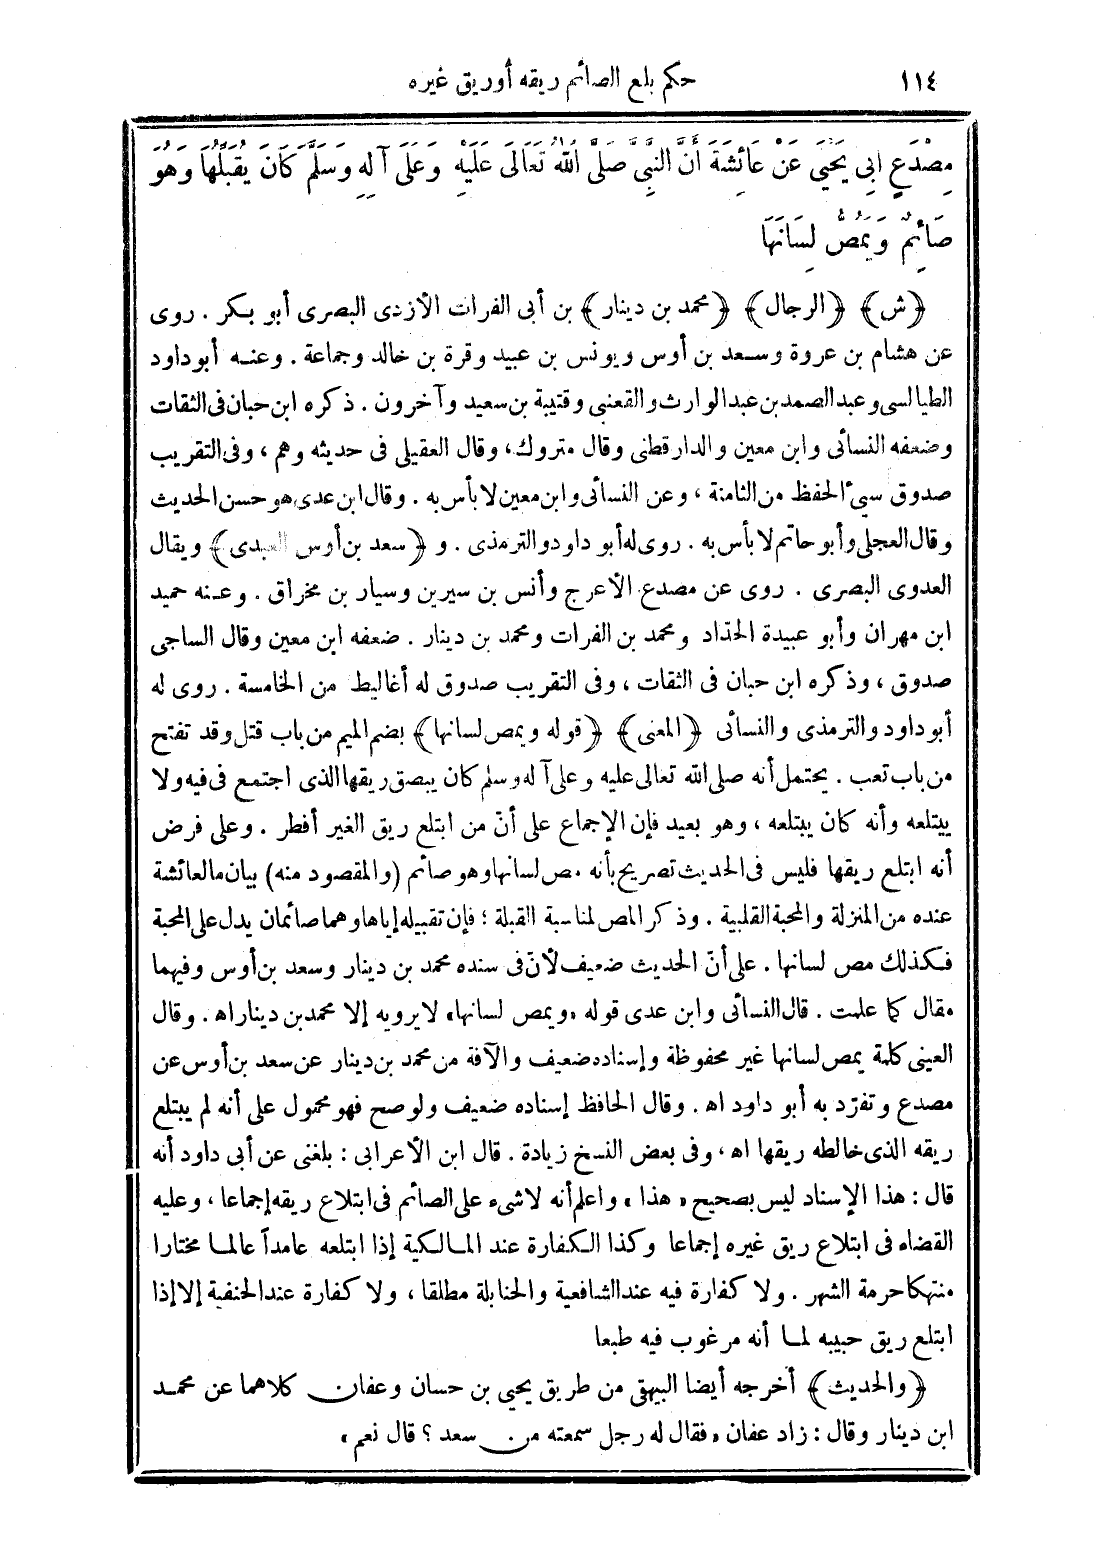 ١١٤
حكم بلع الصائم ريقه أوريق غيره
مِصْدَعٍ أَبِي يَحْيَى عَنْ عَائِشَةَ أَنَّ النَّبِيَّ صَلَّى اللهُ تَعَالَى عَلَيْهِ وَعَلَى آلِهِ وَسَلَّمَ كَانَ يُقَبِّلُهَا وَهُوَ
صَائِمٌ وَيَمُصُّ لِسَانَهَا
﴿ش﴾ ﴿الرجال﴾ ﴿محمد بن دينار﴾ بن أبى الفرات الأزدى البصرى أبو بكر . روى
عن هشام بن عروة وسعد بن أوس ويونس بن عبيد وقرة بن خالد وجماعة . وعنه أبوداود
الطيالسى وعبد الصمد بن عبد الوارث والقعنبى وقتيبة بن سعيد وآخرون . ذكره ابن حبان فى الثقات
وضعفه النسائى وابن معين والدارقطنى وقال متروك، وقال العقيلى فى حديثه وهم ، وفى التقريب
صدوق سيئ الحفظ من الثامنة ، وعن النسائى وابن معين لا بأس به . وقال ابن عدى هو حسن الحديث
وقال العجلى وأبو حاتم لا بأس به . روى له أبو داود والترمذى . و ﴿سعد بن أوس العبدى﴾ ويقال
العدوى البصرى . روى عن مصدع الأعرج وأنس بن سيرين وسيار بن مخراق . وعنه حميد
ابن مهران وأبو عبيدة الحداد ومحمد بن الفرات ومحمد بن دينار . ضعفه ابن معين وقال الساجى
صدوق ، وذكره ابن حبان فى الثقات ، وفى التقريب صدوق له أغاليط من الخامسة . روى له
أبو داود والترمذى والنسائى ﴿المعنى﴾ ﴿قوله ويمص لسانها﴾ بضم الميم من باب قتل وقد تفتح
من باب تعب . يحتمل أنه صلى الله تعالى عليه وعلى آله وسلم كان يبصق ريقها الذى اجتمع فى فيه ولا
يبتلعه وأنه كان يبتلعه ، وهو بعيد فإن الإجماع على أنّ من ابتلع ريق الغير أفطر . وعلى فرض
أنه ابتلع ريقها فليس فى الحديث تصريح بأنه مص لسانها وهو صائم (والمقصود منه) بيان ما لعائشة
عنده من المنزلة والمحبة القلبية . وذكر المص لمناسبة القبلة ؛ فإن تقبيله إياها وهما صائمان يدل على المحبة
فكذلك مص لسانها . على أنّ الحديث ضعيف لأنّ فى سنده محمد بن دينار وسعد بن أوس وفيهما
مقال كما علمت . قال النسائى وابن عدى قوله «ويمص لسانها» لا يرويه إلا محمد بن دينار اه . وقال
العينى كلمة يمص لسانها غير محفوظة وإسناده ضعيف والآفة من محمد بن دينار عن سعد بن أوس عن
مصدع وتفرّد به أبو داود اه . وقال الحافظ إسناده ضعيف ولو صح فهو محمول على أنه لم يبتلع
ريقه الذى خالطه ريقها اه ، وفى بعض النسخ زيادة . قال ابن الأعرابى : بلغنى عن أبى داود أنه
قال : هذا الإسناد ليس بصحيح «هذا» واعلم أنه لا شىء على الصائم فى ابتلاع ريقه إجماعا ، وعليه
القضاء فى ابتلاع ريق غيره إجماعا وكذا الكفارة عند المالكية إذا ابتلعه عامداً عالما مختارا
منتهكا حرمة الشهر . ولا كفارة فيه عند الشافعية والحنابلة مطلقا ، ولا كفارة عند الحنفية إلا إذا
ابتلع ريق حبيبه لما أنه مرغوب فيه طبعا
﴿والحديث﴾ أخرجه أيضا البيهقى من طريق يحيى بن حسان وعفان كلاهما عن محمد
ابن دينار وقال : زاد عفان «فقال له رجل سمعته من سعد ؟ قال نعم»